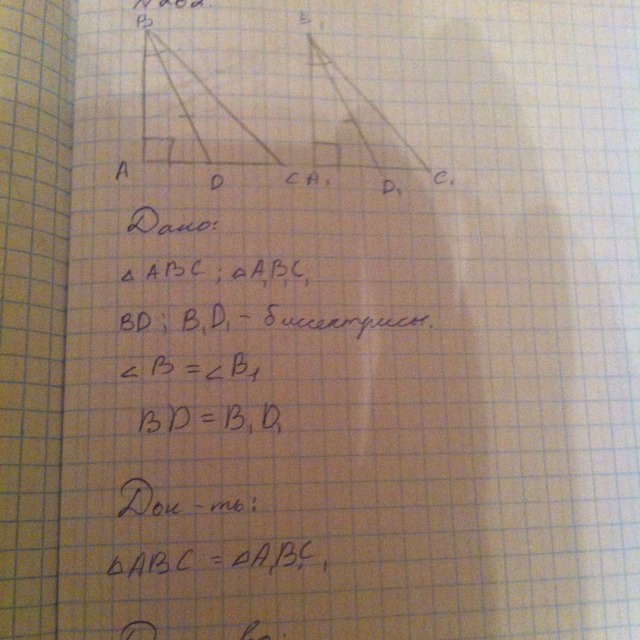 B B₁
A D C A₁ D₁ C₁
Дано:
△ABC; △A₁B₁C₁
BD; B₁D₁ - биссектрисы.
∠B = ∠B₁
BD = B₁D₁
Док-ть:
△ABC = △A₁B₁C₁